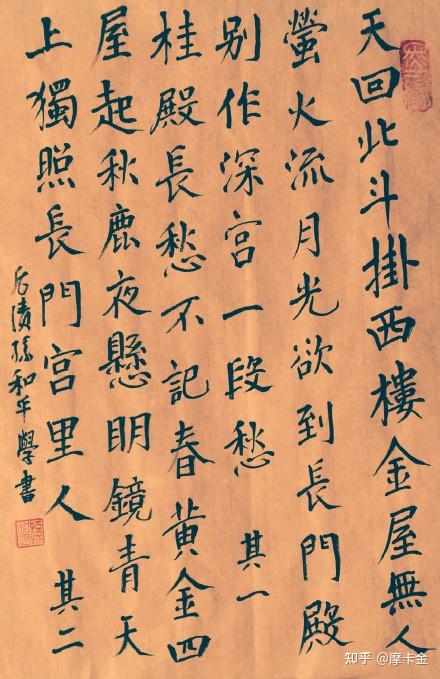 天回北斗掛西樓金屋無人
螢火流月光欲到長門殿
别作深宫一段愁 其一
桂殿長愁不記春黄金四
屋起秋鹿夜懸明鏡青天
上獨照長門宫里人 其二
孫和平學書
知乎 @摩卡金